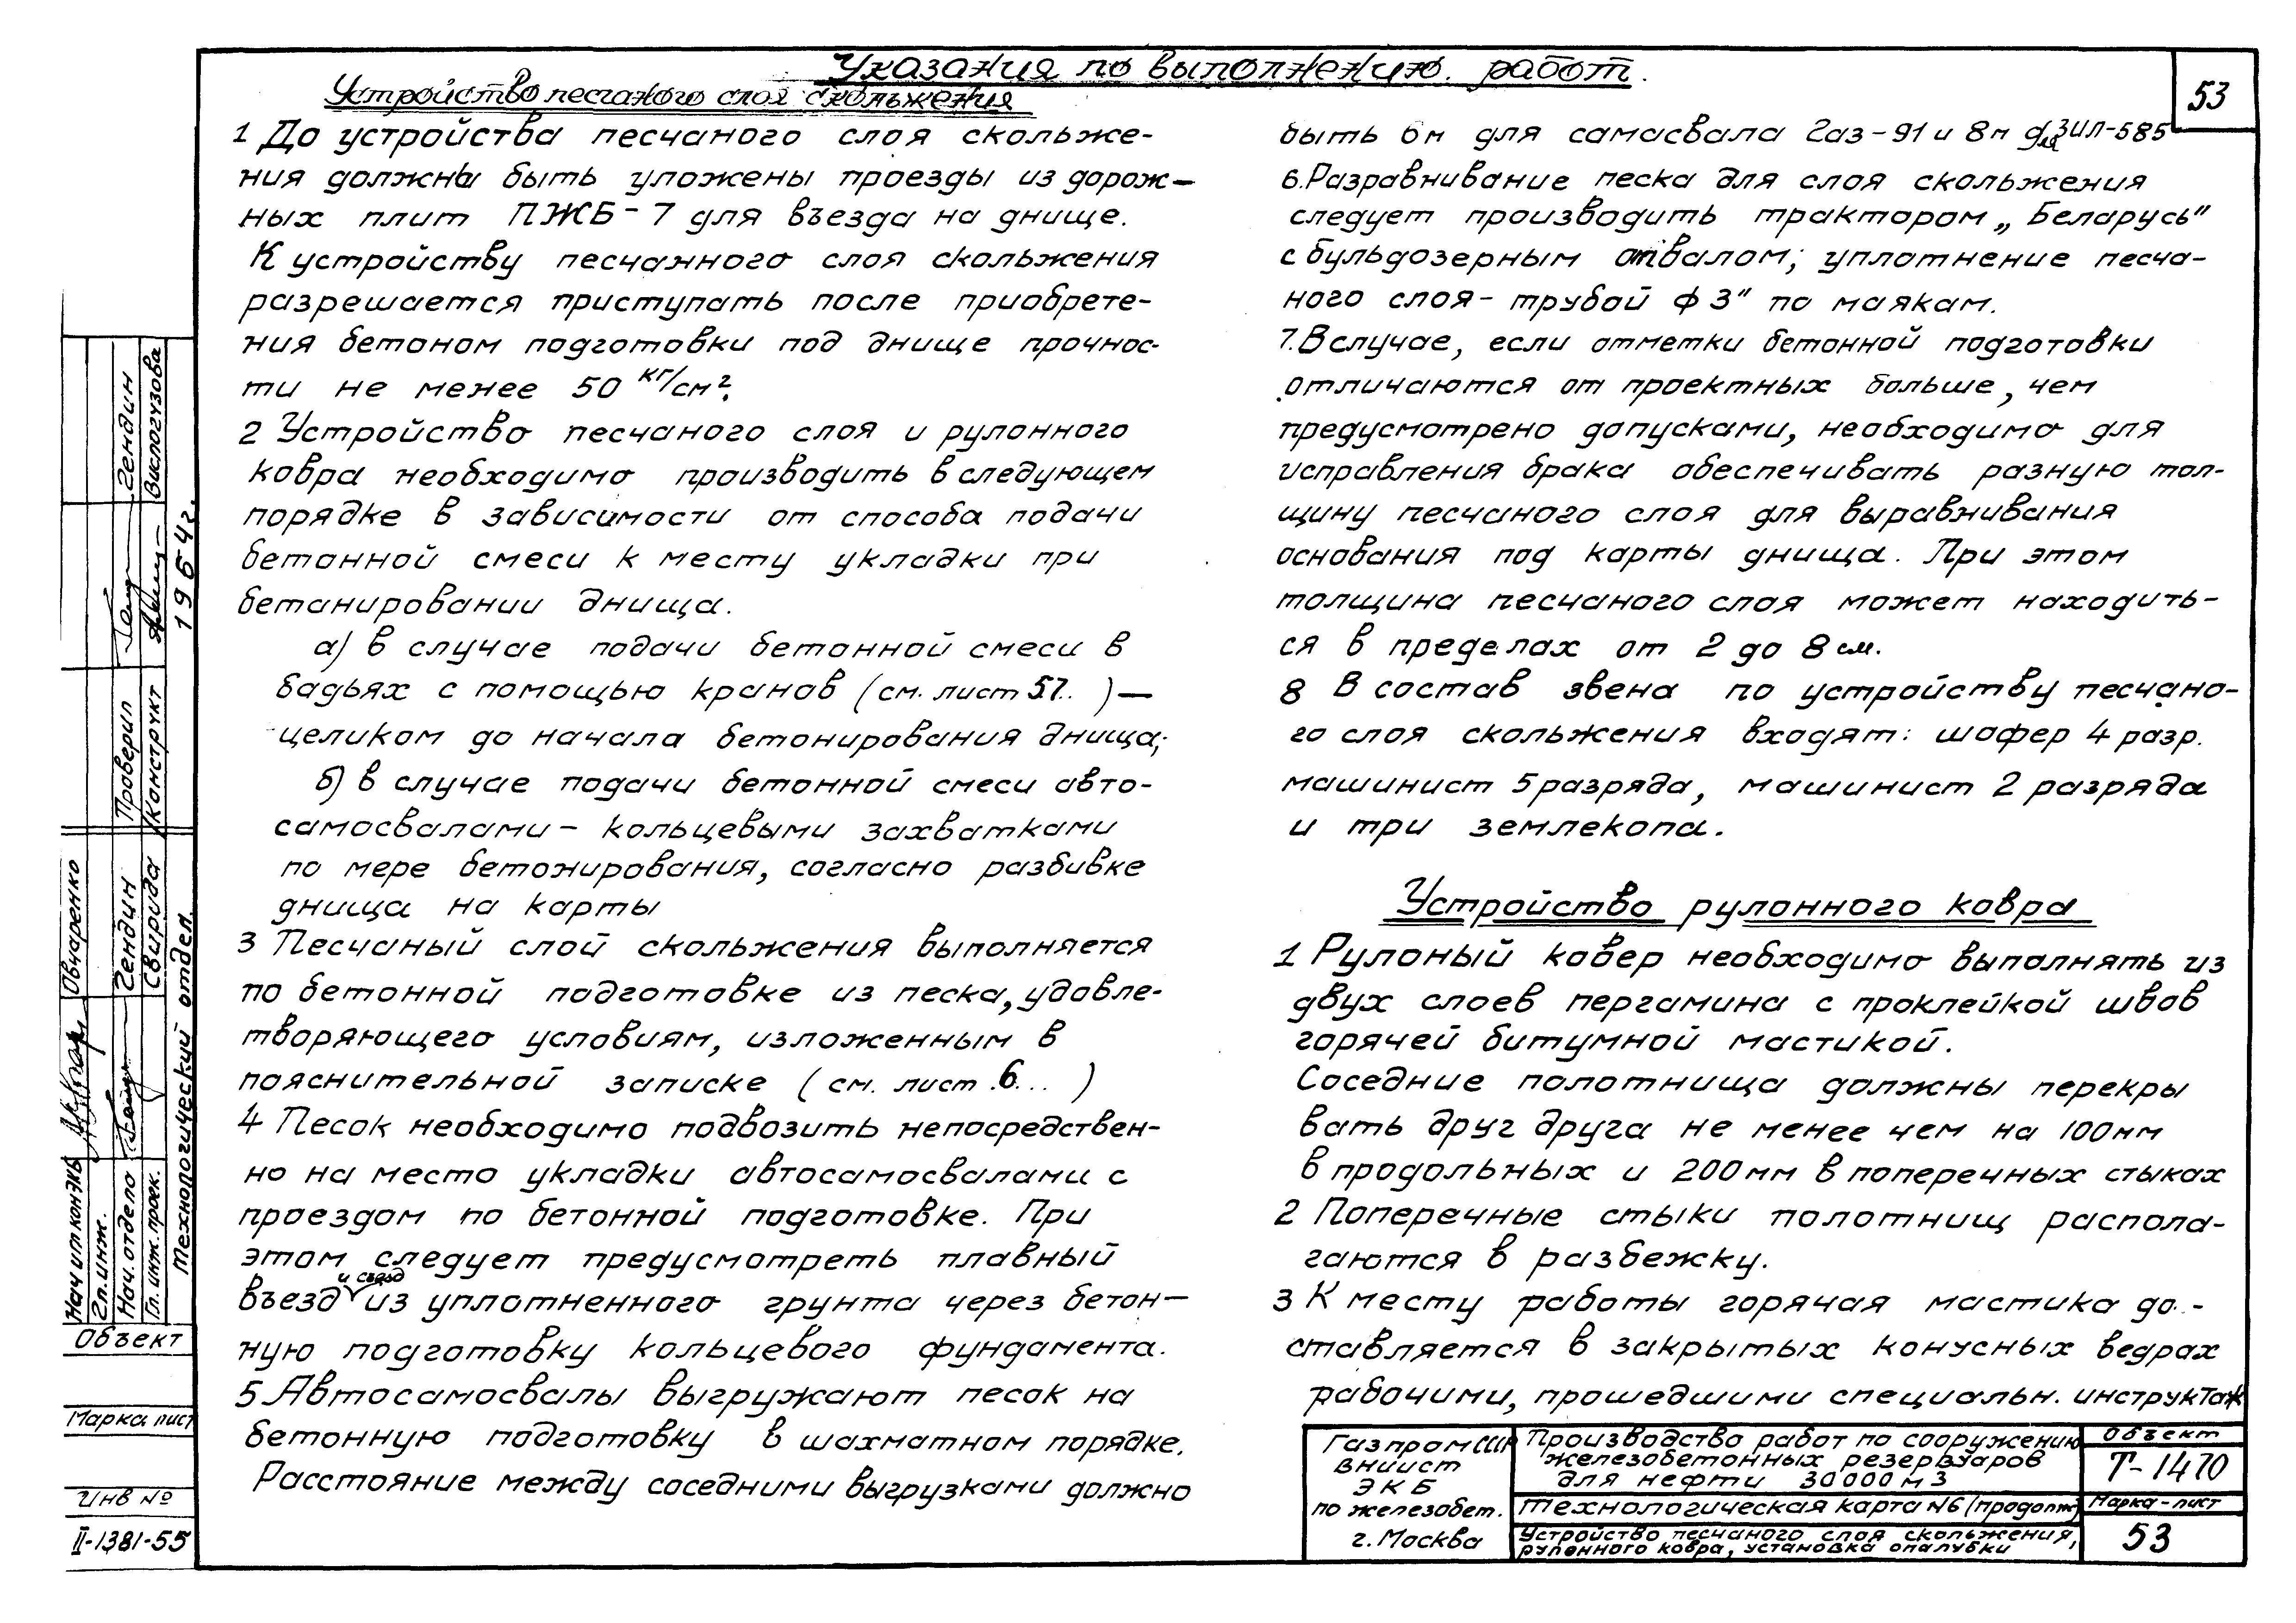 Указания по выполнению работ.
53
Устройство песчаного слоя скольжения
1 До устройства песчаного слоя скольже-
ния должны быть уложены проезды из дорож-
ных плит ПЖБ-7 для въезда на днище.
К устройству песчанного слоя скольжения
разрешается приступать после приобрете-
ния бетоном подготовки под днище прочнос-
ти не менее 50 кг/см².
2 Устройство песчаного слоя и рулонного
ковра необходимо производить в следующем
порядке в зависимости от способа подачи
бетонной смеси к месту укладки при
бетанировании днища.
а) в случае подачи бетонной смеси в
бадьях с помощью кранов (см. лист 57. ) —
целиком до начала бетонирования днища;
б) в случае подачи бетонной смеси авто-
самосвалами - кольцевыми захватками
по мере бетонирования, согласно разбивке
днища на карты
3 Песчаный слой скольжения выполняется
по бетонной подготовке из песка, удовле-
творяющего условиям, изложенным в
пояснительной записке (см. лист .6... )
4 Песок необходимо подвозить непосредствен-
но на место укладки автосамосвалами с
проездом по бетонной подготовке. При
этом следует предусмотреть плавный
въезд и съезд из уплотненного грунта через бетон-
ную подготовку кольцевого фундамента.
5 Автосамосвалы выгружают песок на
бетонную подготовку в шахматном порядке.
Расстояние между соседними выгрузками должно
быть 6м для самасвала Газ-91 и 8м для ЗИЛ-585
6. Разравнивание песка для слоя скольжения
следует производить трактором „Беларусь"
с бульдозерным отвалом; уплотнение песча-
ного слоя - трубой ф 3" по маякам.
7. В случае, если отметки бетонной подготовки
отличаются от проектных больше, чем
предусмотрено допусками, необходимо для
исправления брака обеспечивать разную тол-
щину песчаного слоя для выравнивания
основания под карты днища. При этом
толщина песчаного слоя может находить-
ся в пределах от 2 до 8 см.
8 В состав звена по устройству песчано-
го слоя скольжения входят: шофер 4 разр.
машинист 5 разряда, машинист 2 разряда
и три землекопа.
Устройство рулонного ковра
1 Рулоный ковер необходимо выполнять из
двух слоев пергамина с проклейкой швов
горячей битумной мастикой.
Соседние полотнища должны перекры
вать друг друга не менее чем на 100мм
в продольных и 200мм в поперечных стыках
2 Поперечные стыки полотнищ распола-
гаются в разбежку.
3 К месту работы горячая мастика до-
ставляется в закрытых конусных ведрах
рабочими, прошедшими специальн. инструктаж
Газпром СССР
ВНИИСТ
ЭКБ
по железобет.
г. Москва
Производство работ по сооружению
железобетонных резервуаров
для нефти 30000 м3
Технологическая карта №6 (продолж)
Устройство песчаного слоя скольжения,
рулонного ковра, установка опалубки
Объект
Т-1470
Марка-лист
53
Нач ит конэкб
Овчаренко
Гл. инж.
Нач. отдело
Гендин
Проверил
Гендин
Гл. инж. проек.
Свирида
Конструкт
Вислогузова
Технологический отдел.
1964г.
Объект
Марка лист
Инв №
II-1381-55